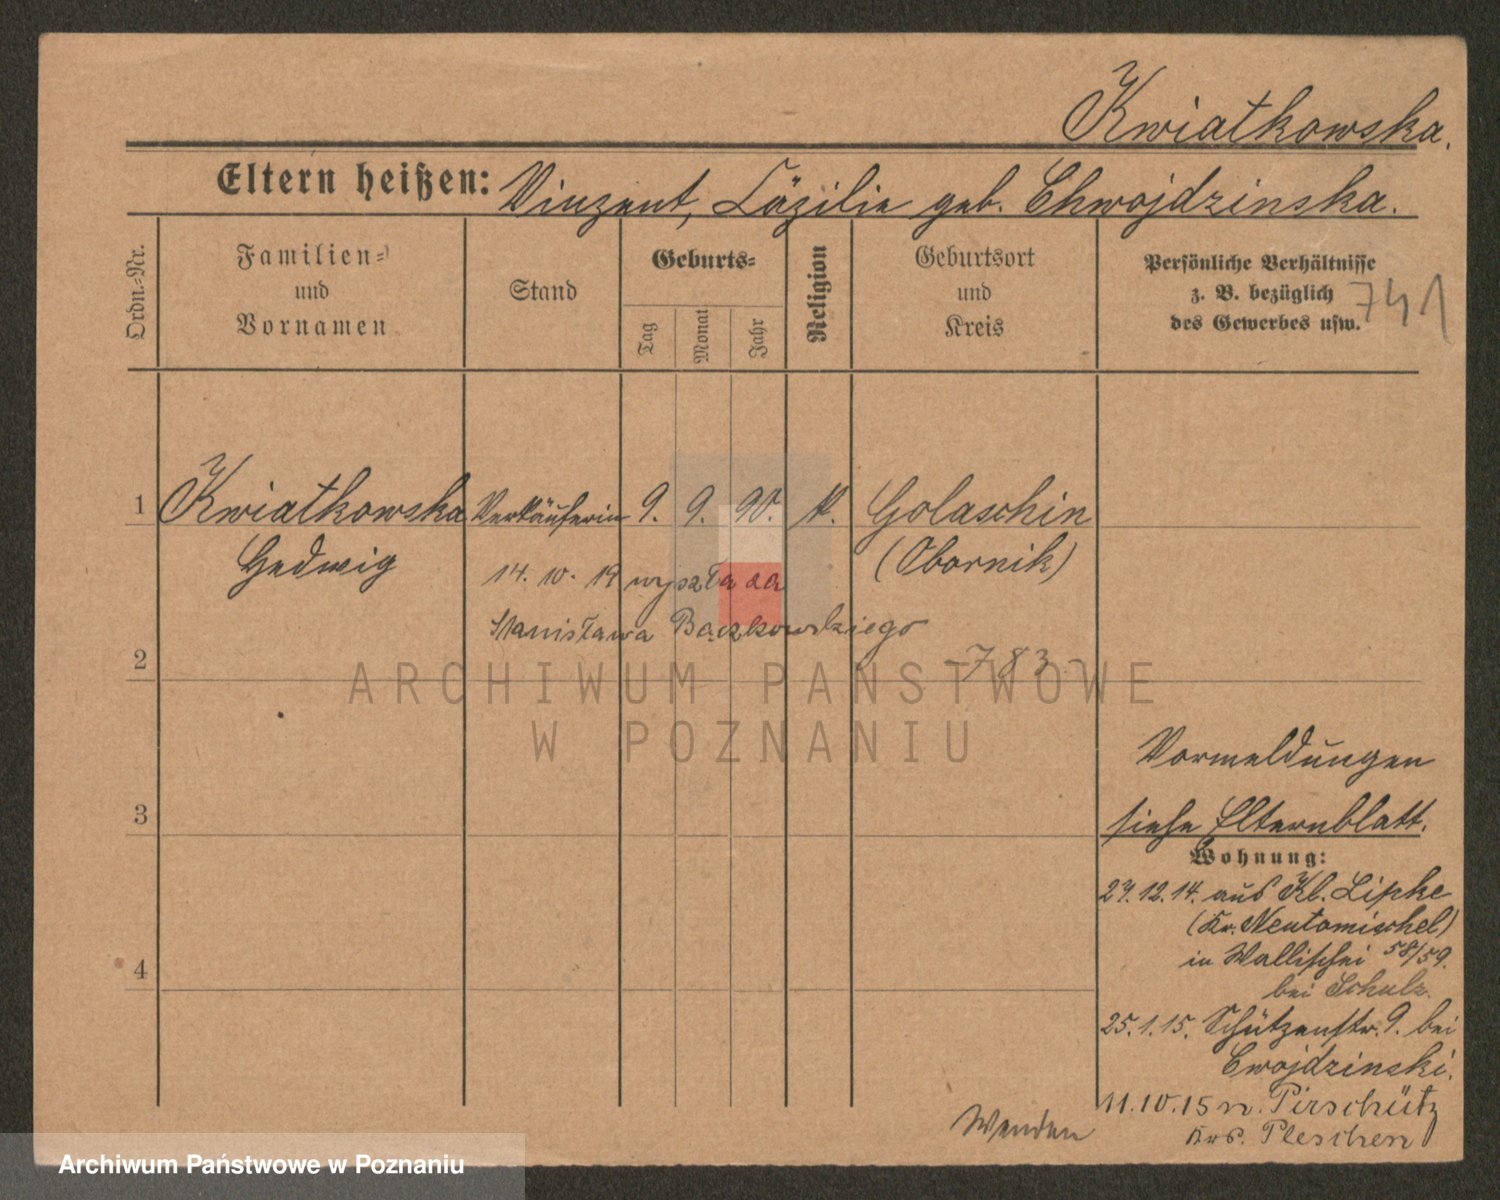 Kwiatkowska.
Eltern heißen: Vinzent, Cäzilie geb. Chwojdzinska.
Ordn.-Nr.
Familien-
und
Vornamen
Stand
Geburts-
Tag
Monat
Jahr
Religion
Geburtsort
und
Kreis
Persönliche Verhältnisse
z. B. bezüglich
des Gewerbes usw.
741
1 Kwiatkowska Verkäuferin 9. 9. 90. k. Golaschin
Hedwig (Obornik)
14. 10. 19 wyszła za
Stanisława Bączkowskiego
- 783 -
2
ARCHIWUM PAŃSTWOWE
W POZNANIU
Vormeldungen
3 siehe Elternblatt.
Wohnung:
27.12.14. aus Kl. Lipke
(Kr. Neutomischel)
4 in Wallischei 58/59.
bei Schulz.
25.1.15. Schützenstr. 9. bei
Cwojdzinski.
11.10.15 n. Pirschütz
Krs. Pleschen
Wenden
Archiwum Państwowe w Poznaniu